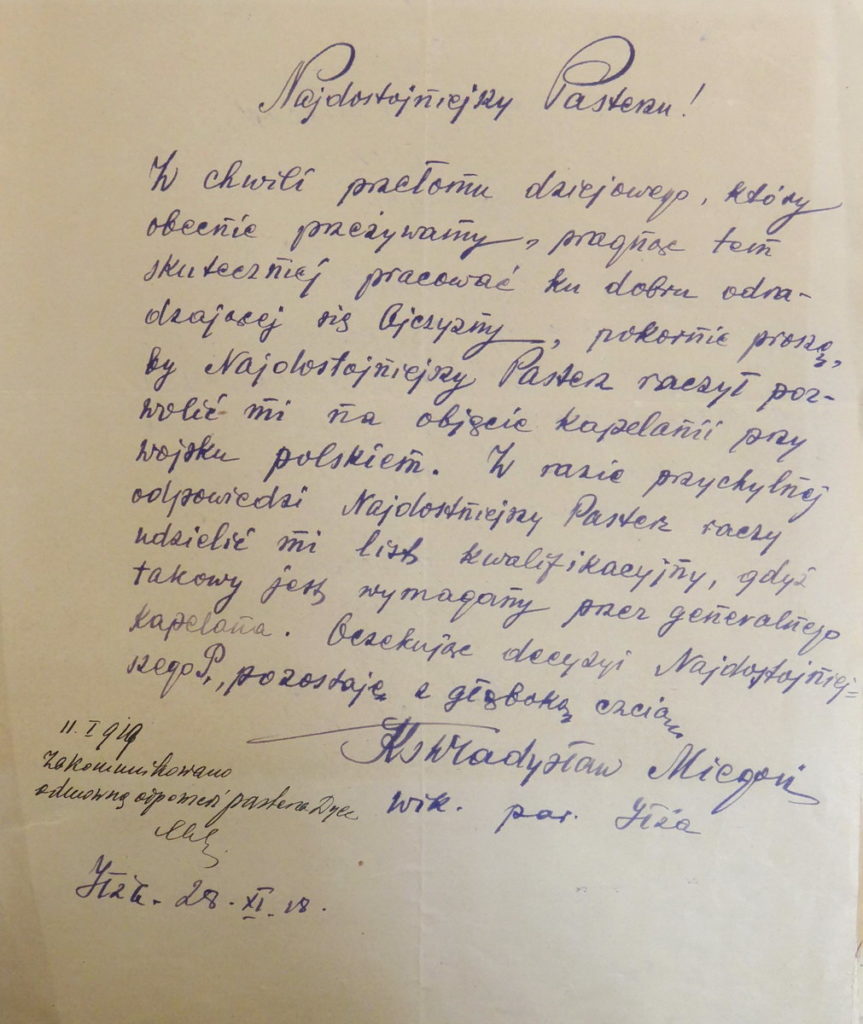 Najdostojniejszy Pasterzu!
W chwili przełomu dziejowego, który
obecnie przeżywamy, pragnąc tem
skuteczniej pracować ku dobru odra-
dzającej się Ojczyzny, pokornie proszę,
by Najdostojniejszy Pasterz raczył poz-
wolić mi na objęcie kapelanii przy
wojsku polskiem. W razie przychylnej
odpowiedzi Najdostniejszy Pasterz raczy
udzielić mi list kwalifikacyjny, gdyż
takowy jest wymagany przez generalnego
kapelana. Oczekując decyzyi Najdostojniej=
szego P., pozostaję z głęboką czcią
Ks Władysław Miegoń
wik. par. Iłża
11. I 919
Zakomunikowano
odmowną odpowiedź pasterza Dyec
Iłża. 28. XI. 18.